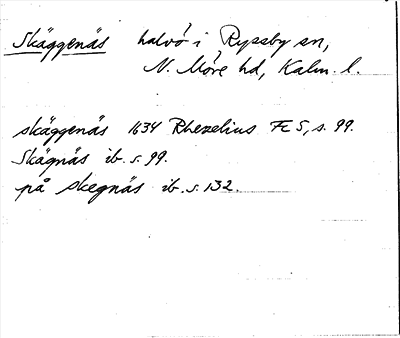 Skäggenäs halvö i Ryssby sn,
N. Möre hd, Kalm. l.
skäggenäs 1634 Rhezelius Fc 5, s. 99.
Skägnäs ib. s. 99.
på skegnäs ib. s. 132.